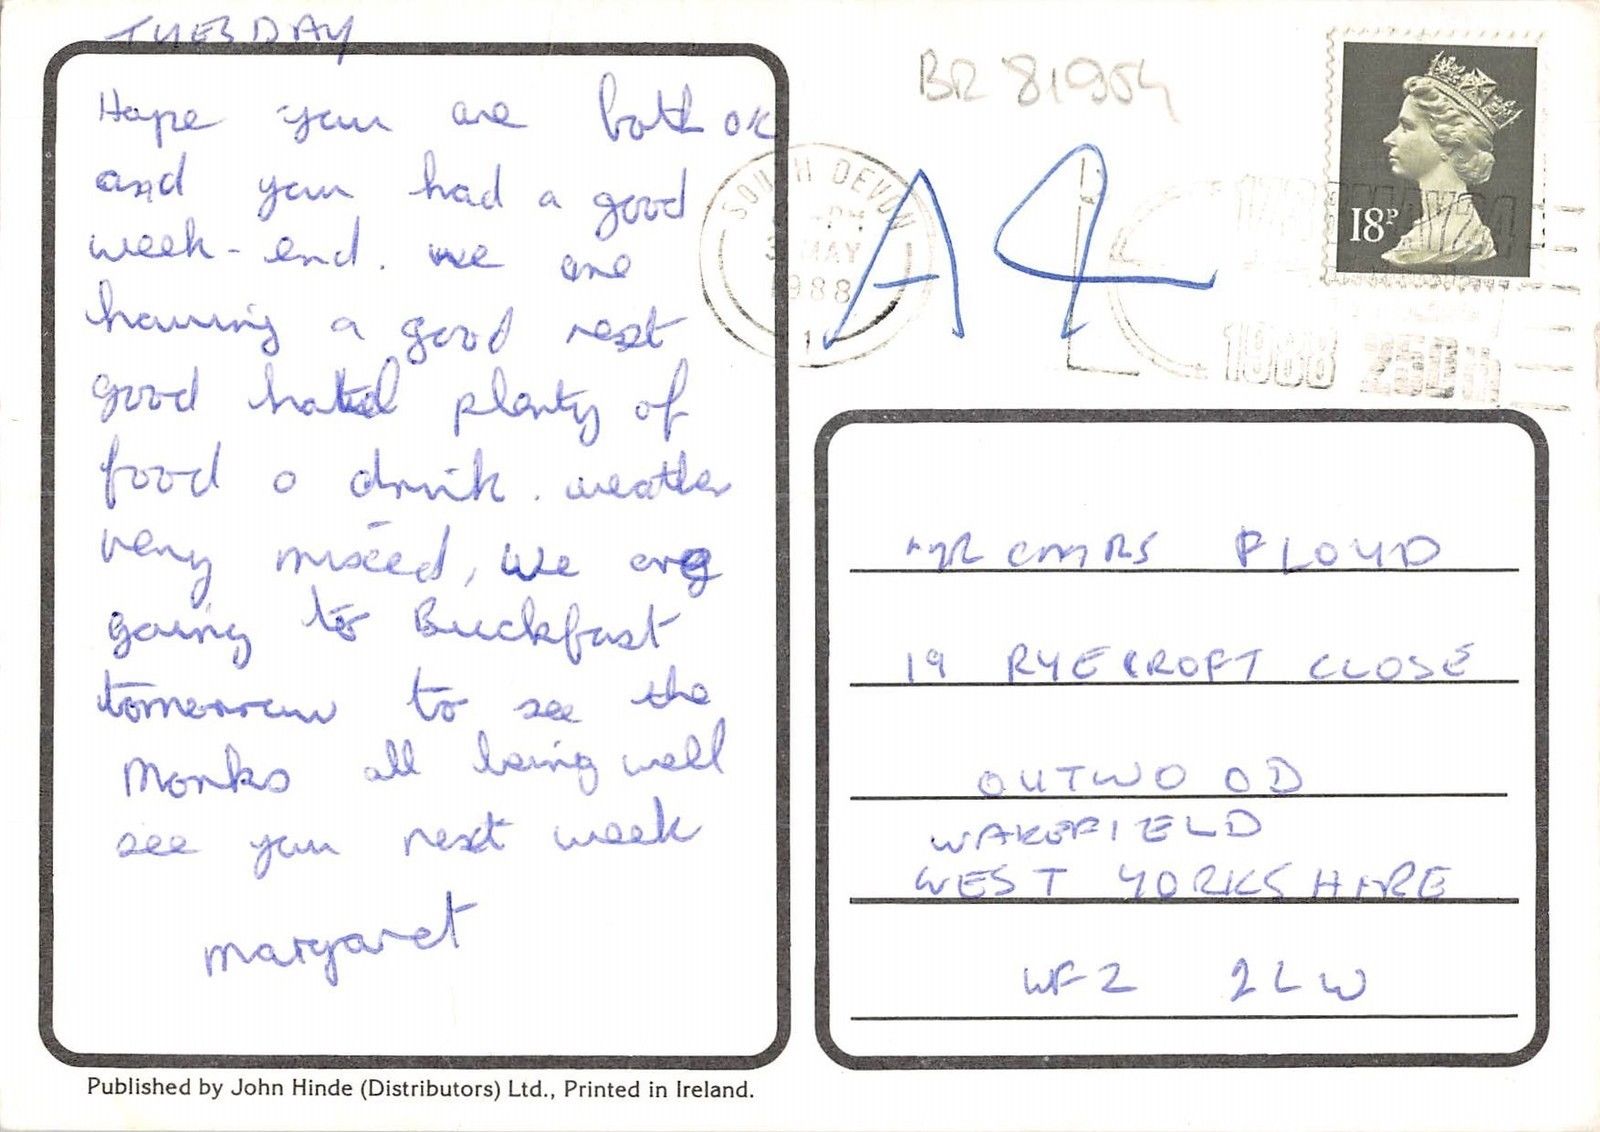 TUESDAY
Hope you are both OK
and you had a good
week-end. we are
having a good rest
good hotel plenty of
food o drink. weather
very mixed, we are
going to Buckfast
tomorrow to see the
Monks all being well
see you next week
margaret
Published by John Hinde (Distributors) Ltd., Printed in Ireland.
BR 81954
SOUTH DEVON
MAY
1988
A4
18P
1988 250th
MR & MRS FLOYD
19 RYECROFT CLOSE
OUTWOOD
WAKEFIELD
WEST YORKSHIRE
WF2 2LW